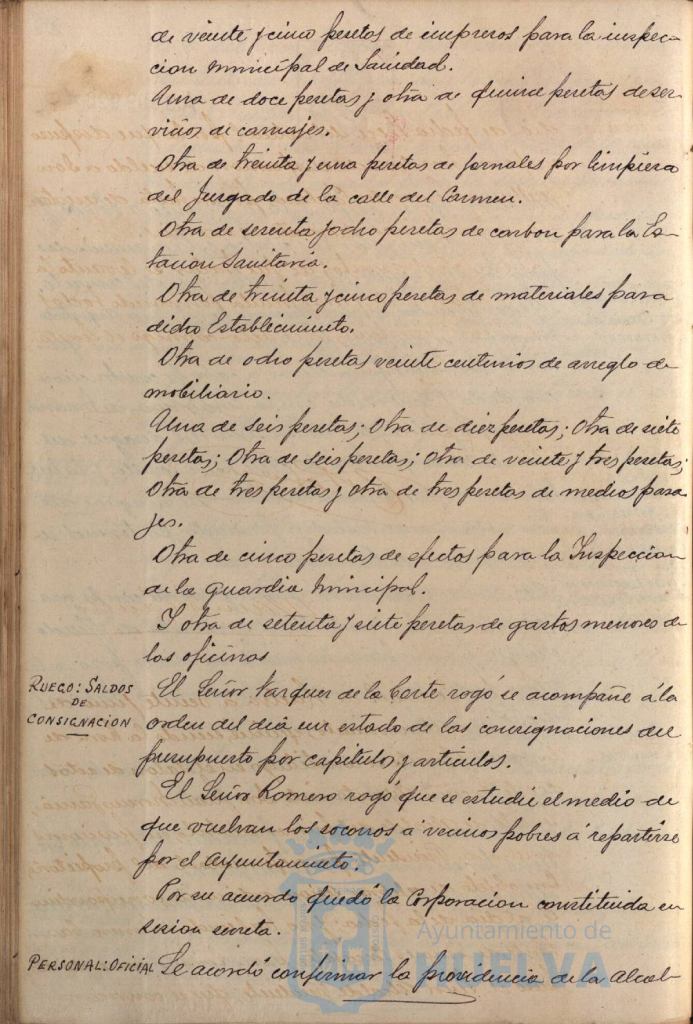 de veinte y cinco pesetas de impresos para la inspec-
cion municipal de Sanidad.
Una de doce pesetas y otra de quince pesetas de ser-
vicios de carruajes.
Otra de treinta y una pesetas de jornales por limpieza
del Juzgado de la calle del Carmen.
Otra de sesenta y ocho pesetas de carbon para la Es-
tacion Sanitaria.
Otra de treinta y cinco pesetas de materiales para
dicho Establecimiento.
Otra de ocho pesetas veinte centimos de arreglo de
mobiliario.
Una de seis pesetas; Otra de diez pesetas; Otra de siete
pesetas; Otra de seis pesetas; Otra de veinte y tres pesetas;
Otra de tres pesetas y otra de tres pesetas de medios pasa-
jes.
Otra de cinco pesetas de efectos para la Inspeccion
de la guardia municipal.
Y otra de setenta y siete pesetas de gastos menores de
las oficinas
RUEGO: SALDOS
DE
CONSIGNACION
El Señor Vazquez de la Corte rogó se acompañe á la
orden del dia un estado de las consignaciones del
presupuesto por capitulos y articulos.
El Señor Romero rogó que se estudie el medio de
que vuelvan los socorros á vecinos pobres á repartirse
por el Ayuntamiento.
Por su acuerdo quedó la Corporacion constituida en
sesion secreta.
PERSONAL: OFICIAL
Se acordó confirmar la providencia de la Alcal-
Ayuntamiento de
HUELVA